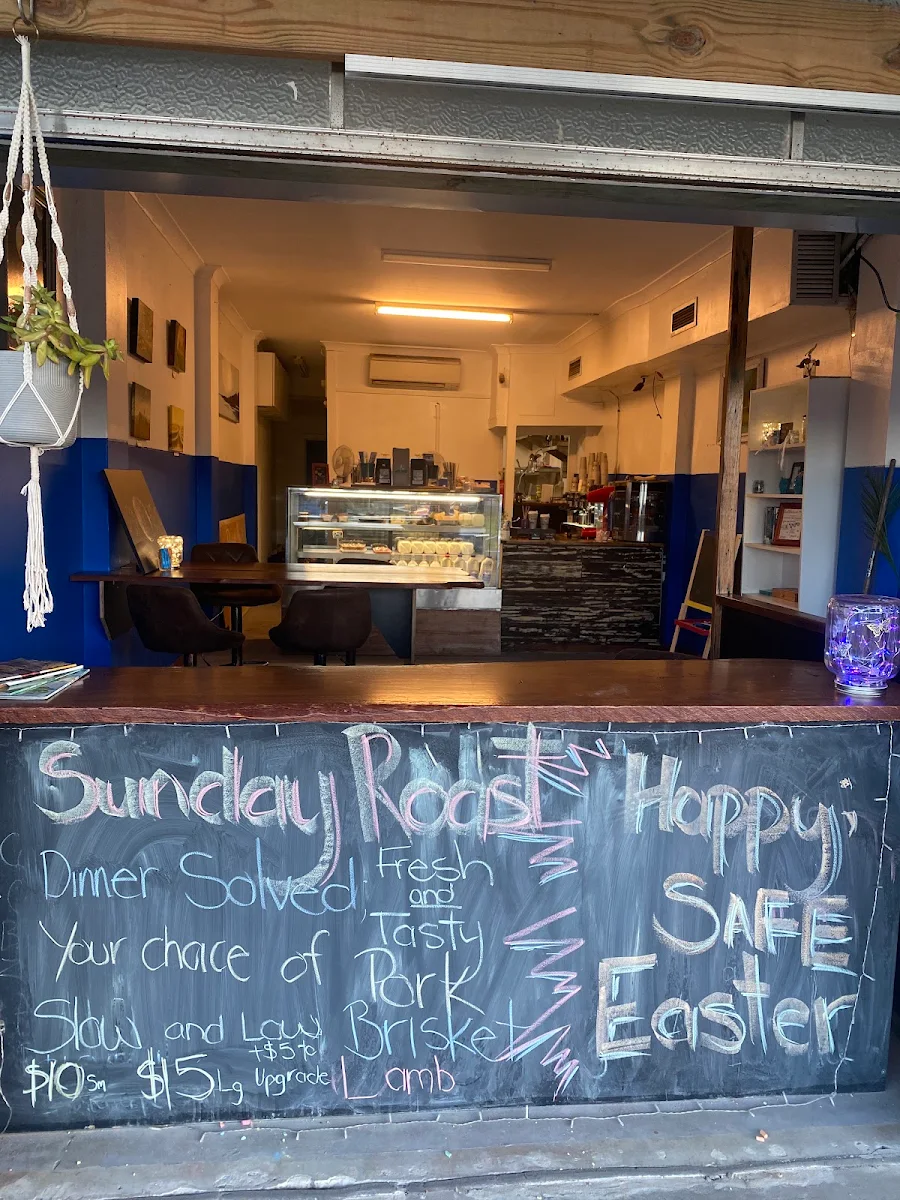 Sunday Roast
Dinner Solved
Your choice of
Slow and Low
$10 Sm $15 Lg
+$5 to
Upgrade
Fresh
and
Tasty
Pork
Brisket
Lamb
Happy
SAFE
Easter